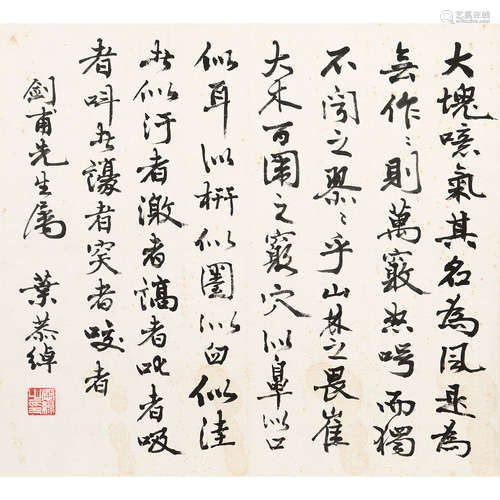 大塊噫氣其名為風是為
無作〻則萬竅怒呺而獨
不聞之翏〻乎山林之畏崔
大木百圍之竅穴似鼻似口
似耳似枅似圈似臼似洼
者似汙者激者謞者叱者吸
者叫者譹者宎者咬者
劍甫先生属
葉恭綽